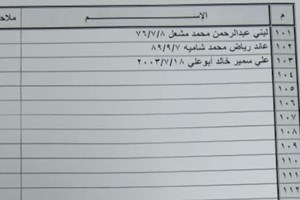 م الإســـــم ملاح
١٠١ لبني عبدالرحمن محمد مشعل ٧٦/٧/٨
١٠٢ عائد رياض محمد شاميه ٨٩/٩/٧
١٠٣ علي سمير خالد أبوعلي ٢٠٠٣/٧/١٨
١٠٤
١٠٥
١٠٦
١٠٧
١٠٨
١٠٩
١١٠
١١١
١١٢